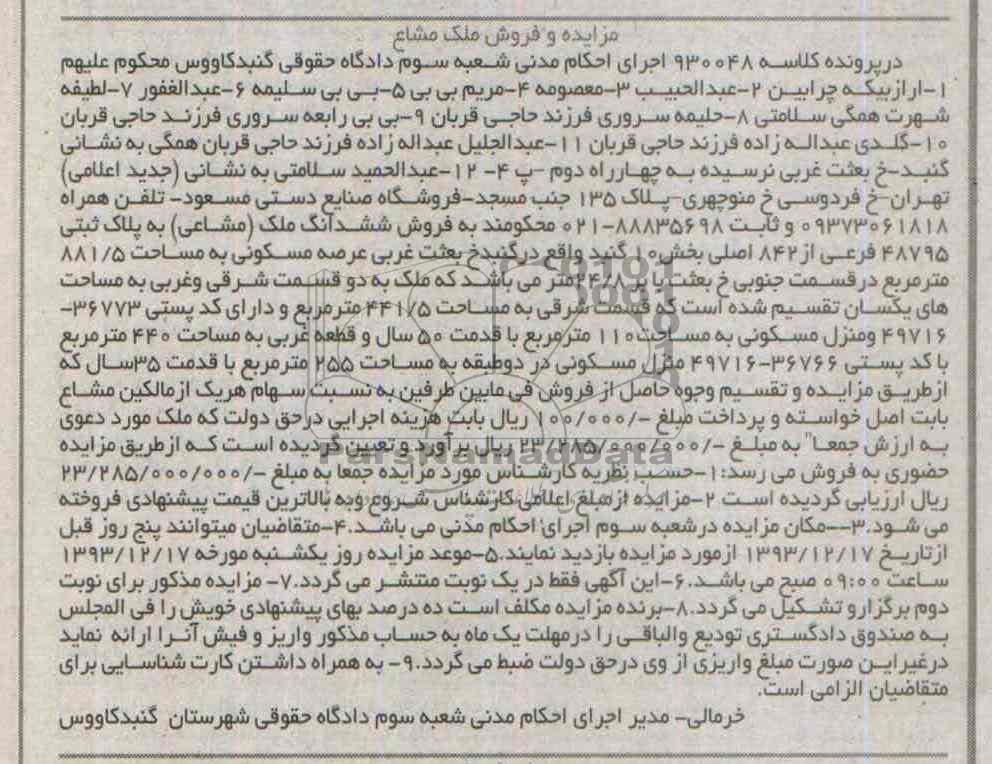 مزایده و فروش ملک مشاع
درپرونده کلاسه ۹۳۰۰۴۸ اجرای احکام مدنی شعبه سوم دادگاه حقوقی گنبدکاووس محکوم علیهم
۱-ارازبیکه چرابین ۲-عبدالحبیب ۳-معصومه ۴-مریم بی بی ۵-بی بی سلیمه ۶-عبدالغفور ۷-لطیفه
شهرت همگی سلامتی ۸-حلیمه سروری فرزند حاجی قربان ۹-بی بی رابعه سروری فرزند حاجی قربان
۱۰-گلدی عبداله زاده فرزند حاجی قربان ۱۱-عبدالجلیل عبداله زاده فرزند حاجی قربان همگی به نشانی
گنبد-خ بعثت غربی نرسیده به چهارراه دوم -پ ۴- ۱۲-عبدالحمید سلامتی به نشانی (جدید اعلامی)
تهران-خ فردوسی خ منوچهری-پلاک ۱۳۵ جنب مسجد-فروشگاه صنایع دستی مسعود- تلفن همراه
۰۹۳۷۳۰۶۱۸۱۸ و ثابت ۸۸۸۳۵۶۹۸-۰۲۱ محکومند به فروش ششدانگ ملک (مشاعی) به پلاک ثبتی
۴۸۷۹۵ فرعی از ۸۴۲ اصلی بخش ۱۰ گنبد واقع درگنبدخ بعثت غربی عرصه مسکونی به مساحت ۸۸۱/۵
مترمربع درقسمت جنوبی خ بعثت با بر ۲۴/۸ متر می باشد که ملک به دو قسمت شرقی وغربی به مساحت
های یکسان تقسیم شده است که قسمت شرقی به مساحت ۴۴۱/۵ مترمربع و دارای کد پستی ۳۶۷۷۳-
۴۹۷۱۶ ومنزل مسکونی به مساحت ۱۱۰ مترمربع با قدمت ۵۰ سال و قطعه غربی به مساحت ۴۴۰ مترمربع
با کد پستی ۳۶۷۶۶-۴۹۷۱۶ منزل مسکونی در دوطبقه به مساحت ۲۵۵ مترمربع با قدمت ۳۵سال که
ازطریق مزایده و تقسیم وجوه حاصل از فروش فی مابین طرفین به نسبت سهام هریک ازمالکین مشاع
بابت اصل خواسته و پرداخت مبلغ -/۱۰۰/۰۰۰ ریال بابت هزینه اجرایی درحق دولت که ملک مورد دعوی
به ارزش جمعا" به مبلغ -/۲۳/۲۸۵/۰۰۰/۰۰۰ ریال برآورد و تعیین گردیده است که ازطریق مزایده
حضوری به فروش می رسد: ۱-حسب نظریه کارشناس مورد مزایده جمعا به مبلغ -/۲۳/۲۸۵/۰۰۰/۰۰۰
ریال ارزیابی گردیده است ۲-مزایده ازمبلغ اعلامی کارشناس شروع وبه بالاترین قیمت پیشنهادی فروخته
می شود.۳--مکان مزایده درشعبه سوم اجرای احکام مدنی می باشد.۴-متقاضیان میتوانند پنج روز قبل
ازتاریخ ۱۳۹۳/۱۲/۱۷ ازمورد مزایده بازدید نمایند.۵-موعد مزایده روز یکشنبه مورخه ۱۳۹۳/۱۲/۱۷
ساعت ۰۹:۰۰ صبح می باشد.۶-این آگهی فقط در یک نوبت منتشر می گردد.۷- مزایده مذکور برای نوبت
دوم برگزارو تشکیل می گردد.۸-برنده مزایده مکلف است ده درصد بهای پیشنهادی خویش را فی المجلس
به صندوق دادگستری تودیع والباقی را درمهلت یک ماه به حساب مذکور واریز و فیش آنرا ارائه نماید
درغیراین صورت مبلغ واریزی از وی درحق دولت ضبط می گردد.۹- به همراه داشتن کارت شناسایی برای
متقاضیان الزامی است.
خرمالی- مدیر اجرای احکام مدنی شعبه سوم دادگاه حقوقی شهرستان گنبدکاووس
ParsNamadData